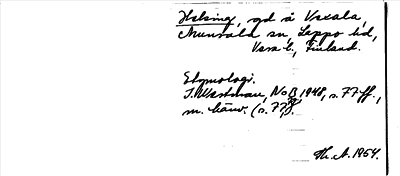 Helsing, gd å Vexala,
Munsala sn, Jeppo hd,
Vasa l., Finland.
Etymologi.
I. Westman, NoB 1948, s. 77 ff.,
m. hänv. (s. 77 ff).
Th. A. 1954.